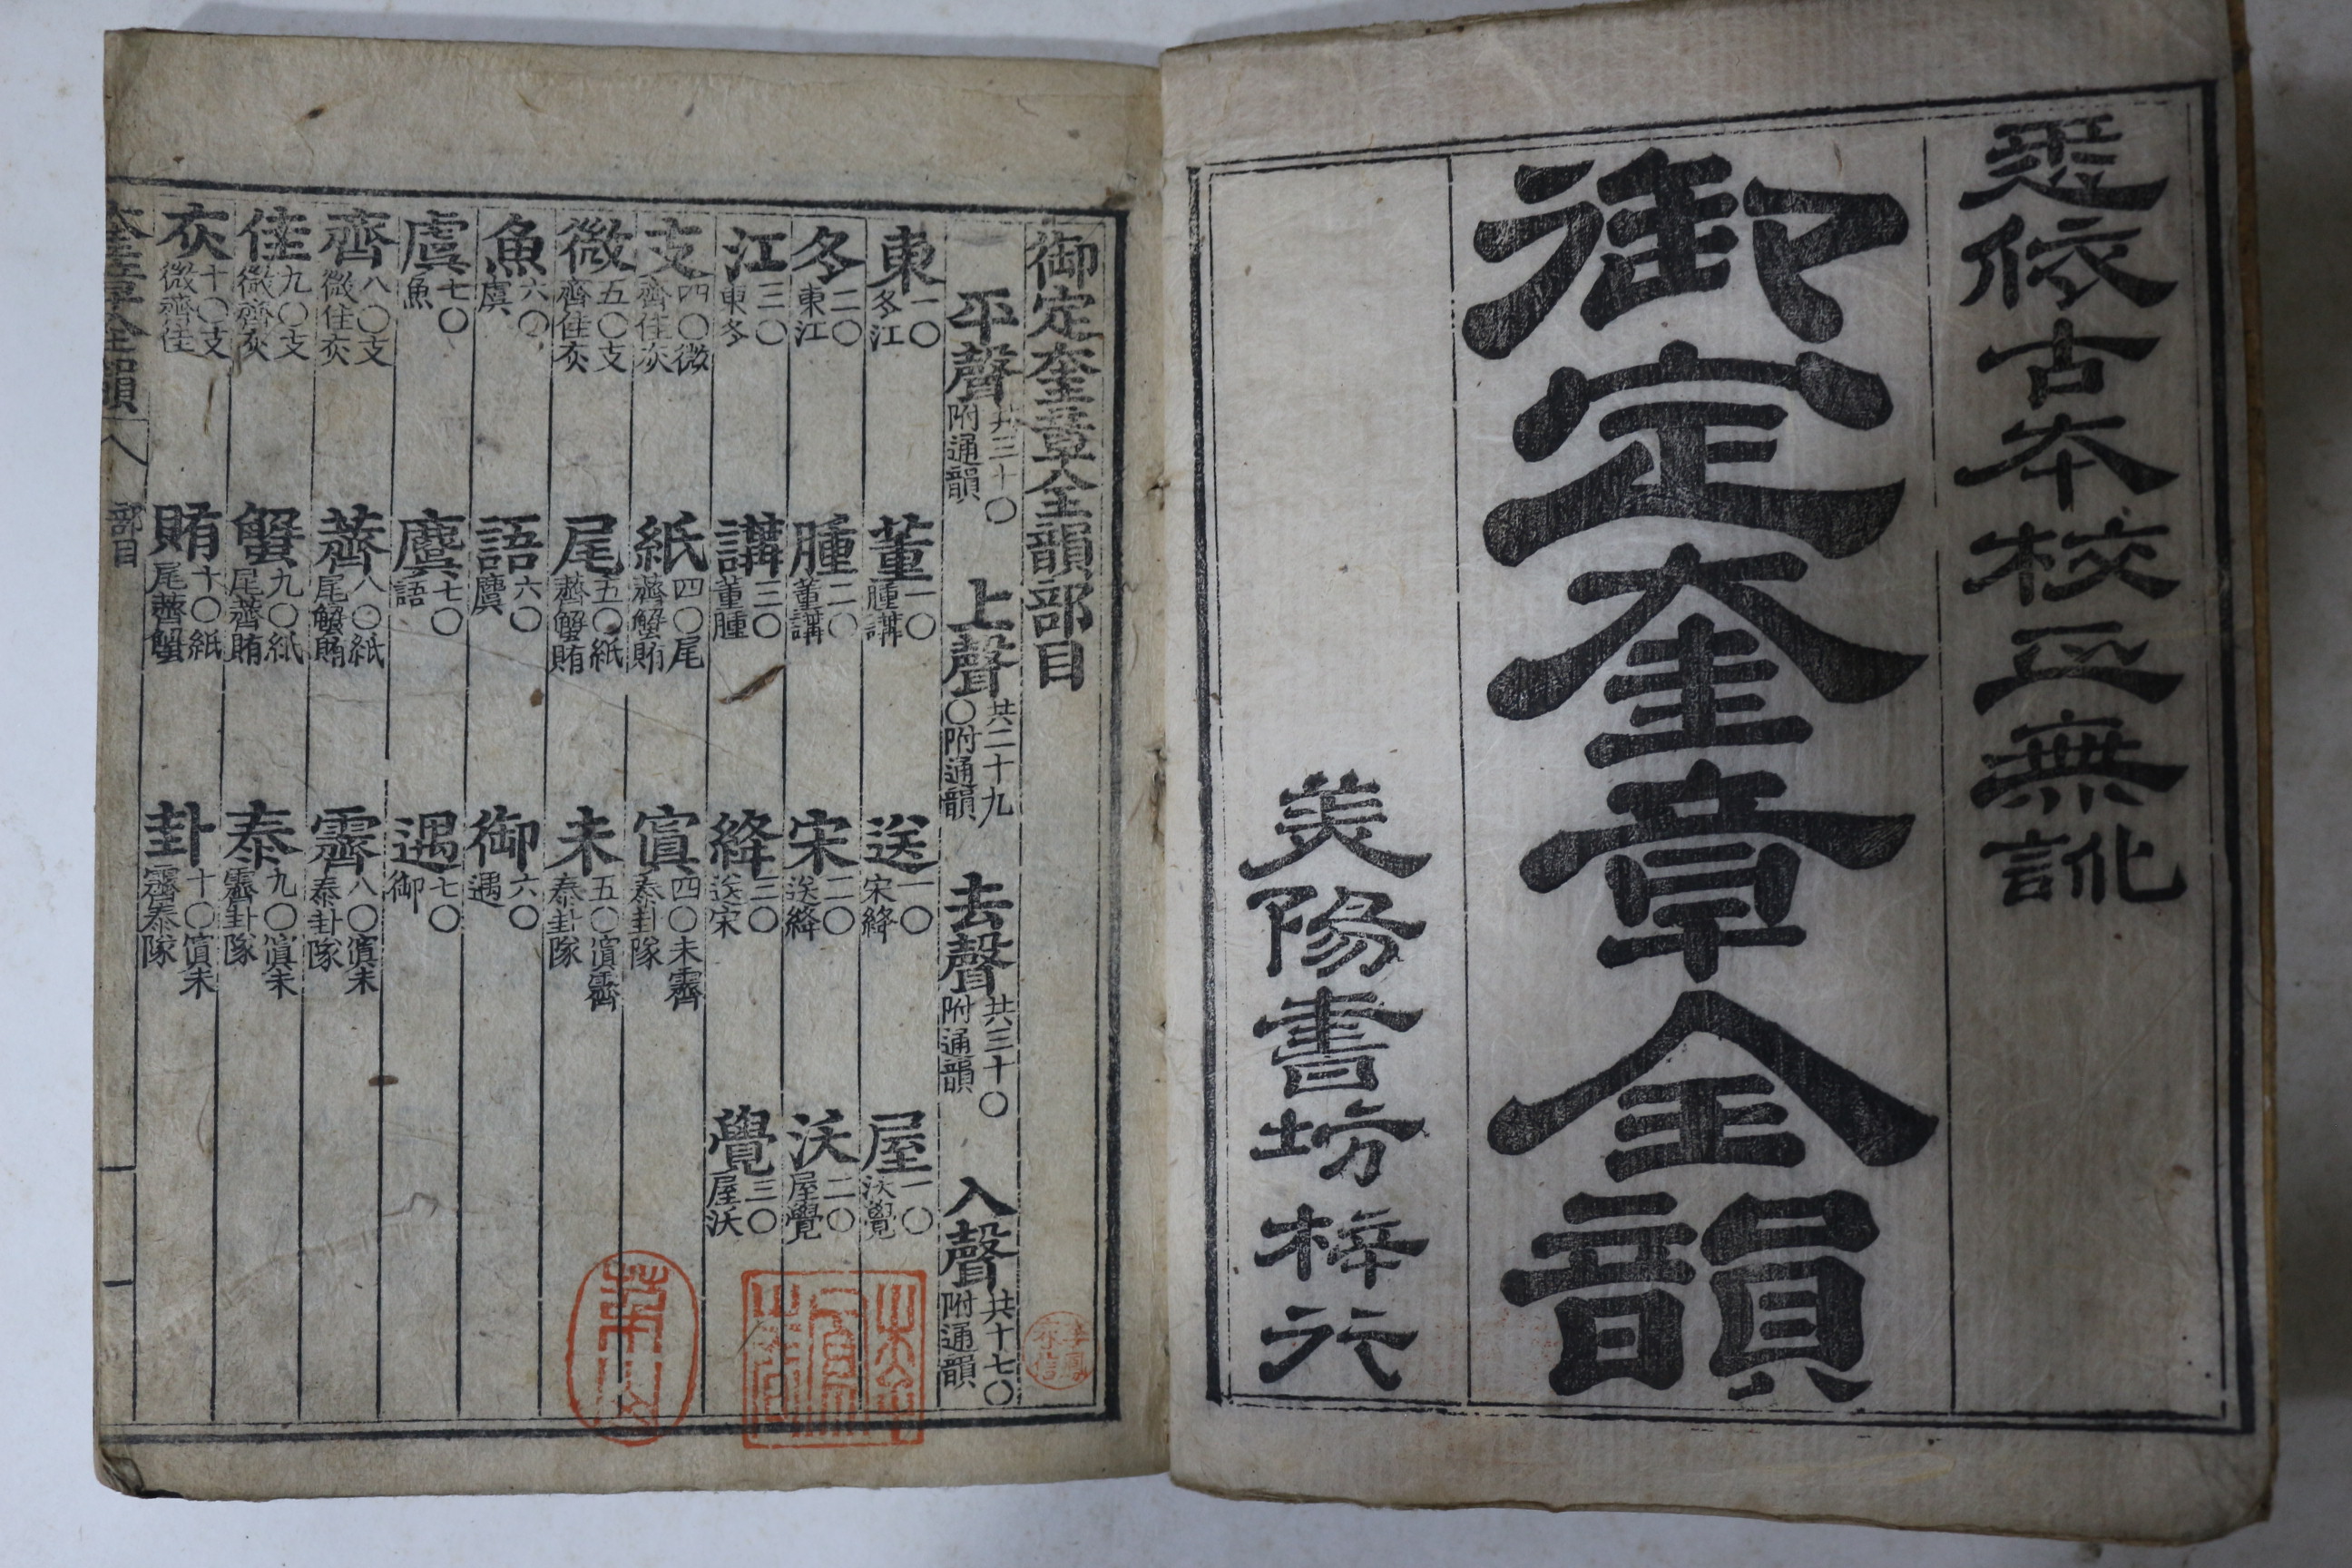 遵依古本校正無訛
御定奎章全韻
美陽書坊梓行
御定奎章全韻部目
平聲共三十〇附通韻 上聲共二十九〇附通韻 去聲共三十〇附通韻 入聲共十七〇附通韻
東一〇冬江 董一〇腫講 送一〇宋絳 屋一〇沃覺
冬二〇東江 腫二〇董講 宋二〇送絳 沃二〇屋覺
江三〇東冬 講三〇董腫 絳三〇送宋 覺三〇屋沃
支四〇微齊佳灰 紙四〇尾薺蟹賄 寘四〇未霽泰卦隊
微五〇支齊佳灰 尾五〇紙薺蟹賄 未五〇寘霽泰卦隊
魚六〇虞 語六〇麌 御六〇遇
虞七〇魚 麌七〇語 遇七〇御
齊八〇支微佳灰 薺八〇紙尾蟹賄 霽八〇寘未泰卦隊
佳九〇支微齊灰 蟹九〇紙尾薺賄 泰九〇寘未霽卦隊
灰十〇支微齊佳 賄十〇紙尾薺蟹 卦十〇寘未霽泰隊
奎章全韻 部目 一